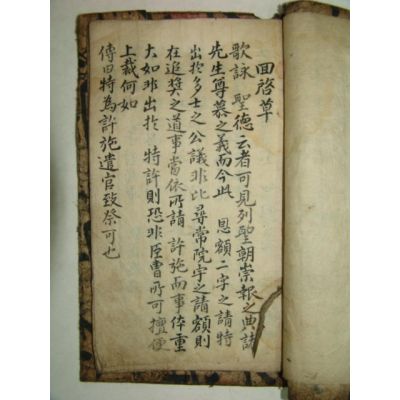 回啓草
歌詠 聖德云者可見列聖朝崇報之典諸
先生尊慕之義而今此 恩額二字之請特
出於多士之公議非比尋常院宇之請額則
在追奬之道事當依所請 許施而事体重
大如非出於 特許則恐非臣曹所可擅便
上裁何如
傳曰特爲許施遣官致祭可也